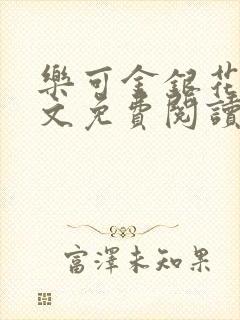 樂可金銀花
文免費閱讀
富澤未知果